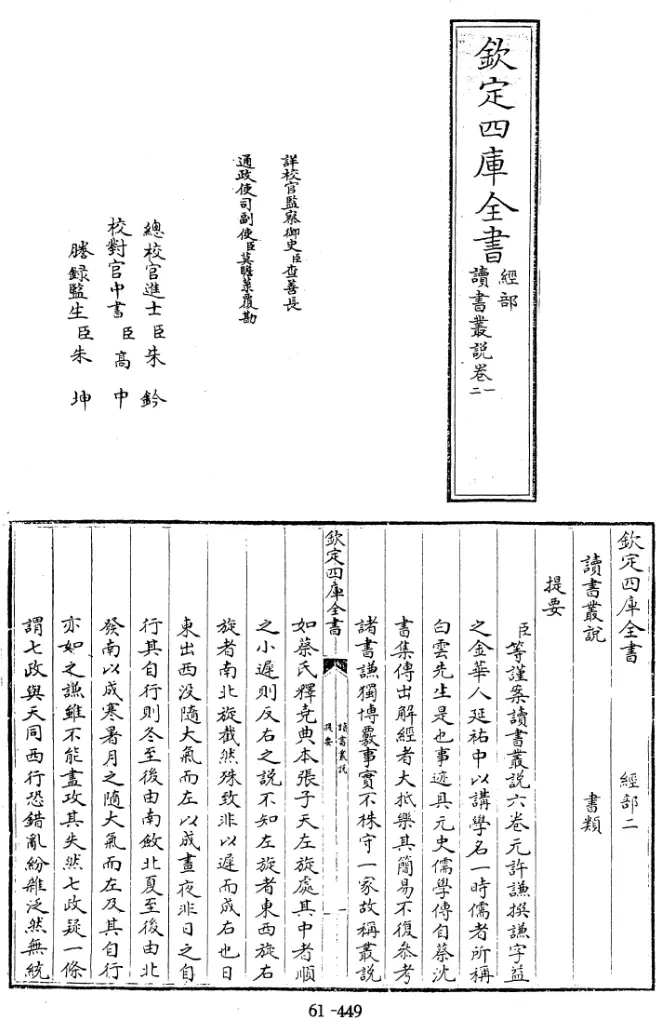 欽定四庫全書
經部
讀書叢說卷一
二
詳校官監察御史臣查善長
通政使司副使臣莫瞻菉覆勘
總校官進士臣朱鈐
校對官中書臣高中
謄錄監生臣朱坤
欽定四庫全書
經部二
讀書叢說
書類
提要
臣等謹案讀書叢說六卷元許謙撰謙字益
之金華人延祐中以講學名一時儒者所稱
白雲先生是也事迹具元史儒學傳自蔡沈
書集傳出解經者大抵樂其簡易不復參考
諸書謙獨博覈事實不株守一家故稱叢說
欽定四庫全書
讀書叢說
提要
一
如蔡氏釋堯典本張子天左旋處其中者順
之小遲則反右之說不知左旋者東西旋右
旋者南北旋截然殊致非以遲而成右也日
東出西沒隨大氣而左以成晝夜非日之自
行其自行則冬至後由南斂北夏至後由北
發南以成寒暑月之隨大氣而左及其自行
亦如之謙雖不能盡攻其失然七政疑一條
謂七政與天同西行恐錯亂紛雜泛然無統
61-449